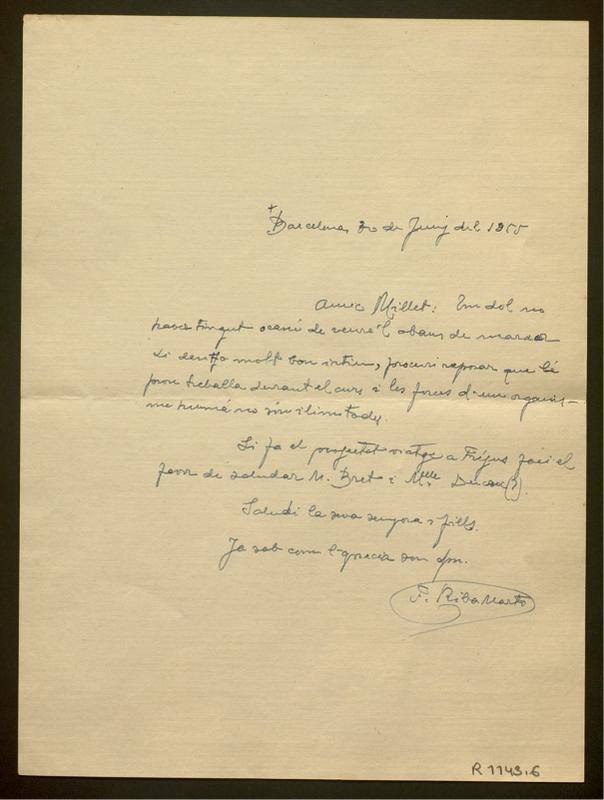 +
Barcelona, 30 de Juny del 1955
Amic Millet: Em dol no
haver tingut ocasió de veure'l abans de marxar
Li desitjo molt bon istiu, procuri reposar que bé
prou treballa durant el curs i les forces d'un organis-
me humá no són ilimitades.
Si fa el projectat viatge a Fréjus faci el
favor de saludar M. Bret i Mlle. (?).
Saludi la seva senyora i fills.
Ja sab com l'aprecia son afm.
F. Riba Martó
R 1149.6